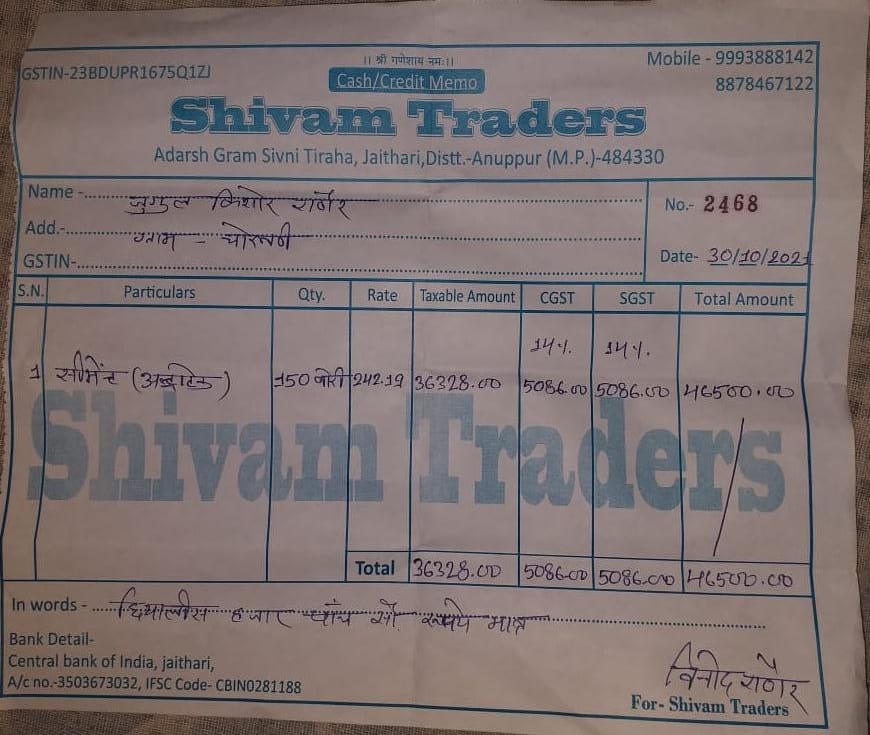 ।। श्री गणेशाय नमः।।
GSTIN-23BDUPR1675Q1ZJ
Cash/Credit Memo
Mobile - 9993888142
8878467122
Shivam Traders
Adarsh Gram Sivni Tiraha, Jaithari,Distt.-Anuppur (M.P.)-484330
Name - जुगुल किशोर राठौर
No.- 2468
Add.- ग्राम -
GSTIN-
Date- 30/10/2021
S.N. Particulars Qty. Rate Taxable Amount CGST SGST Total Amount
14%. 14%.
1 सीमेंट 150 बोरी 242.19 36328.00 5086.00 5086.00 46500.00
Shivam Traders
Total 36328.00 5086.00 5086.00 46500.00
In words - छियालीस हजार पाँच सौ रूपये मात्र
Bank Detail-
Central bank of India, jaithari,
A/c no.-3503673032, IFSC Code- CBIN0281188
विनोद राठौर
For- Shivam Traders